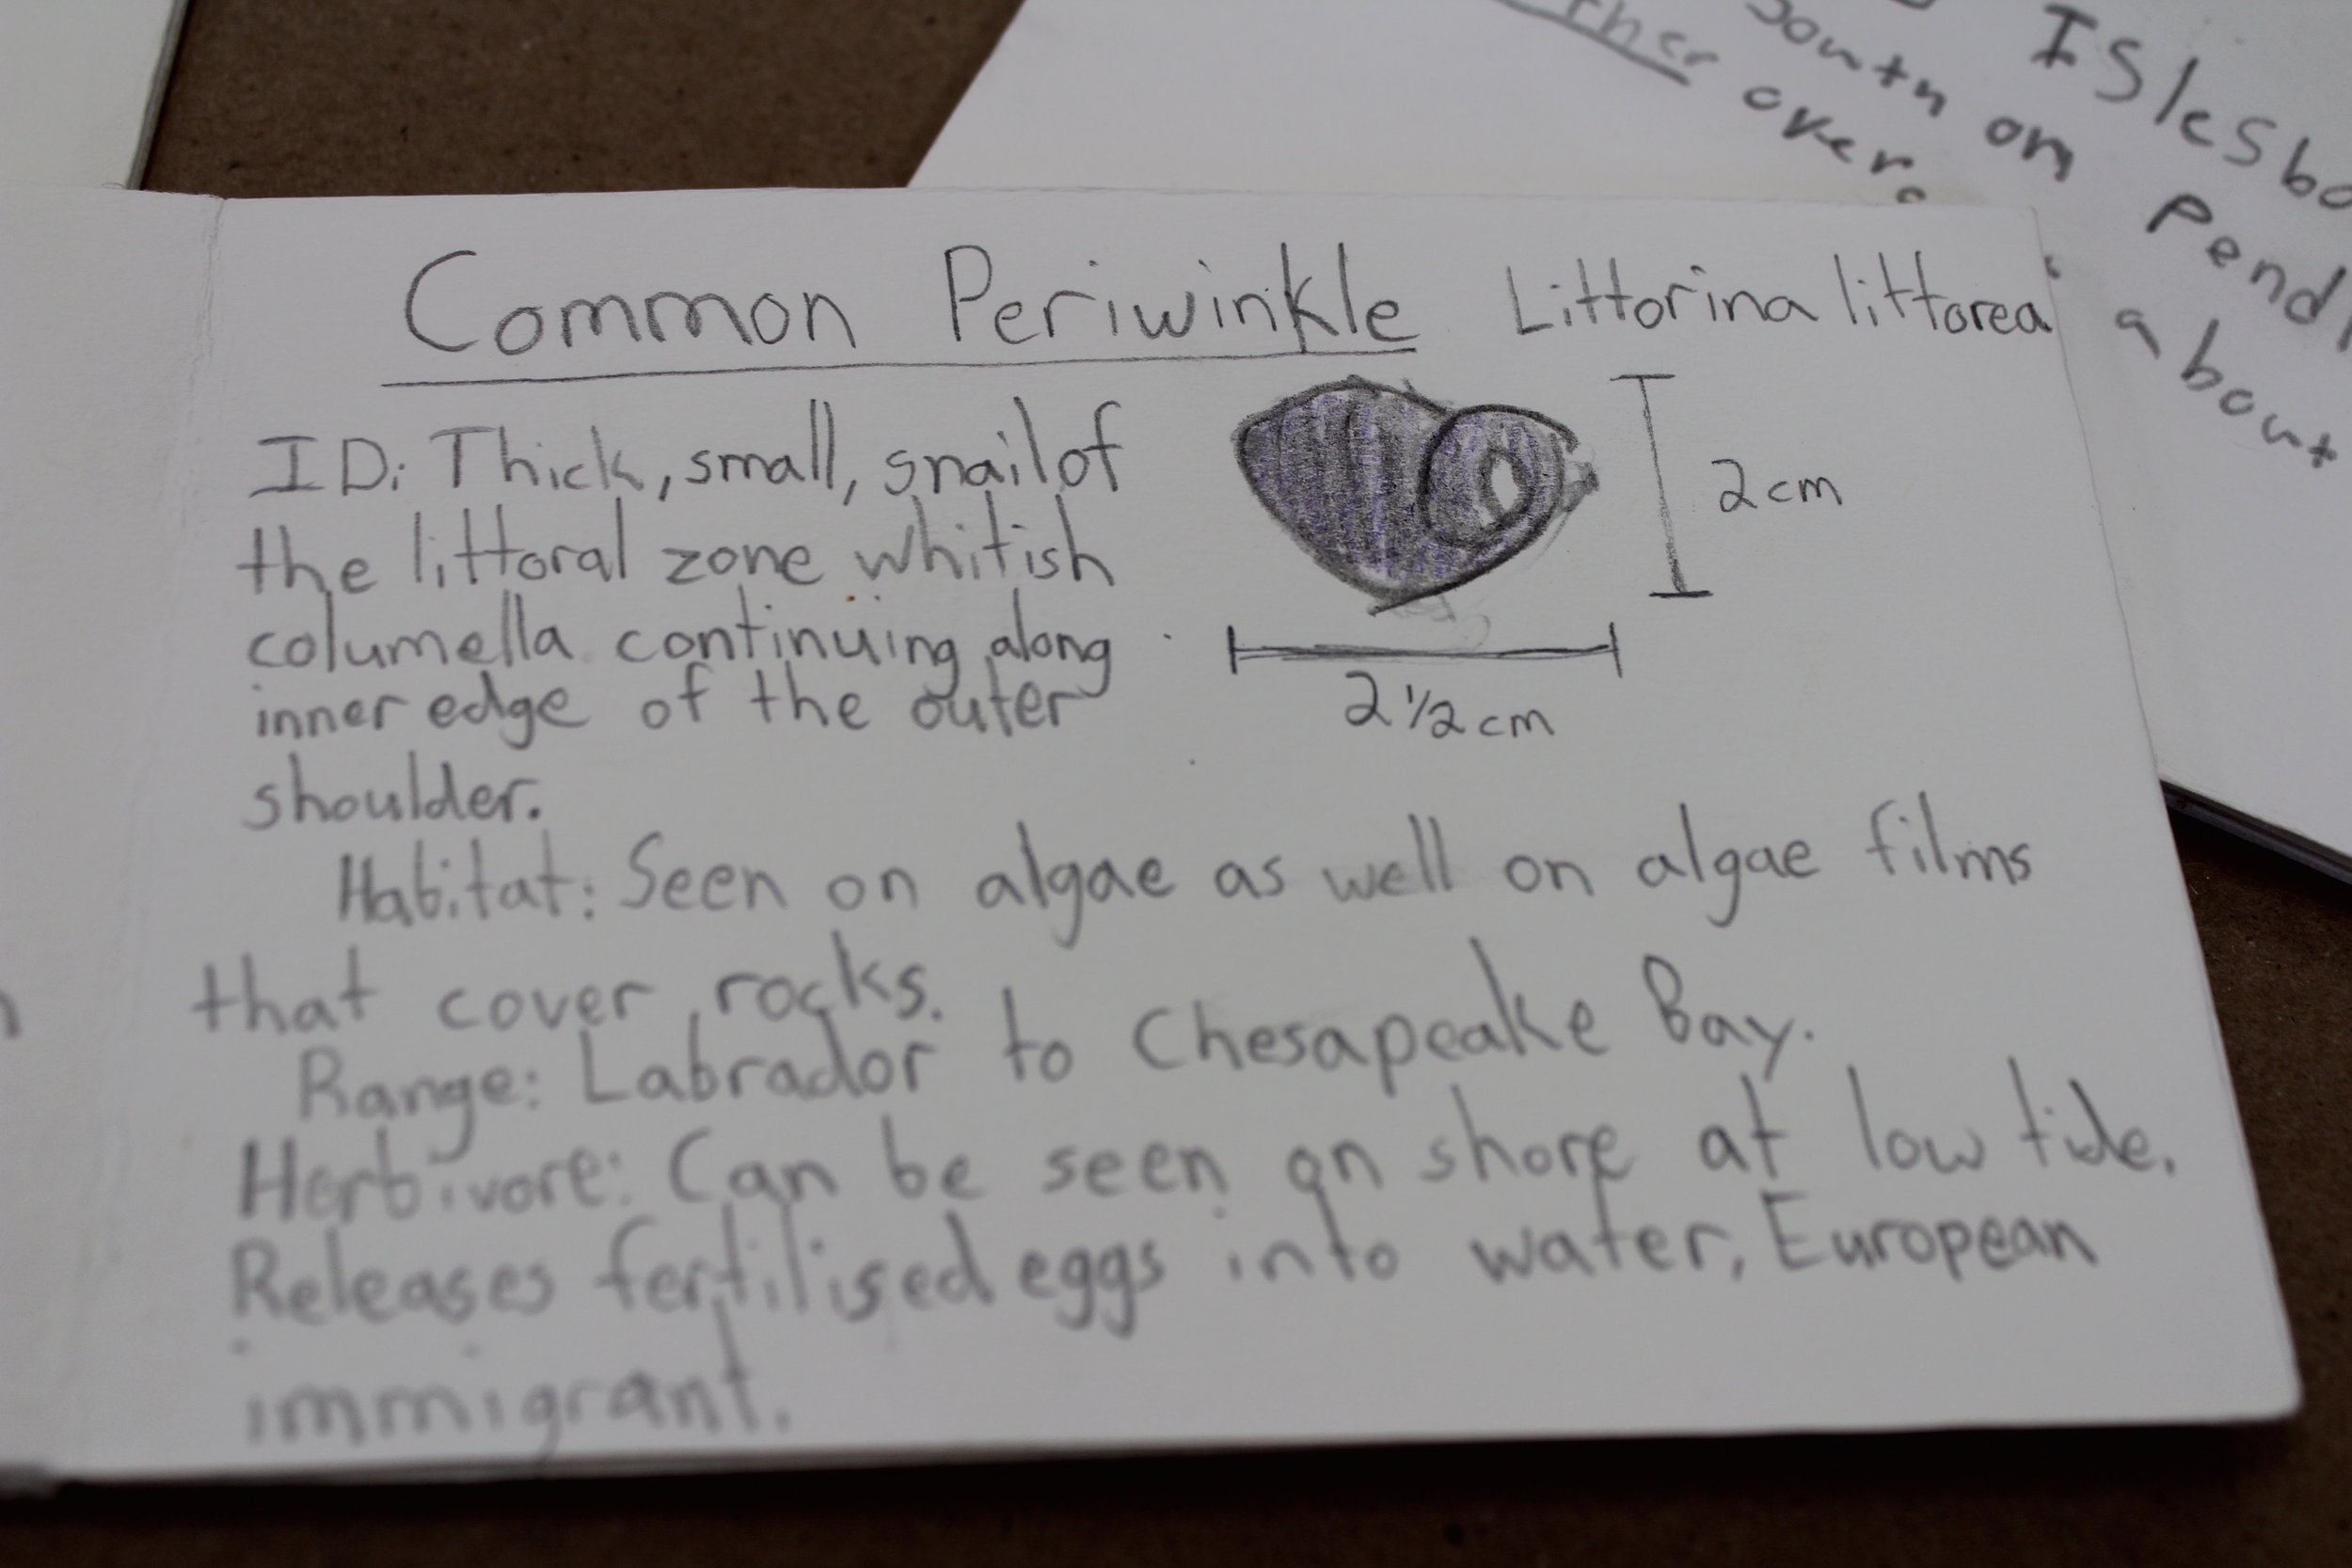 Common Periwinkle Littorina littorea
ID: Thick, small, snail of
the littoral zone whitish
columella continuing along
inner edge of the outer
shoulder.
2 cm
2 1/2 cm
Habitat: Seen on algae as well on algae films
that cover rocks.
Range: Labrador to Chesapeake Bay.
Herbivore: Can be seen on shore at low tide.
Releases fertilised eggs into water, European
immigrant.
on
about